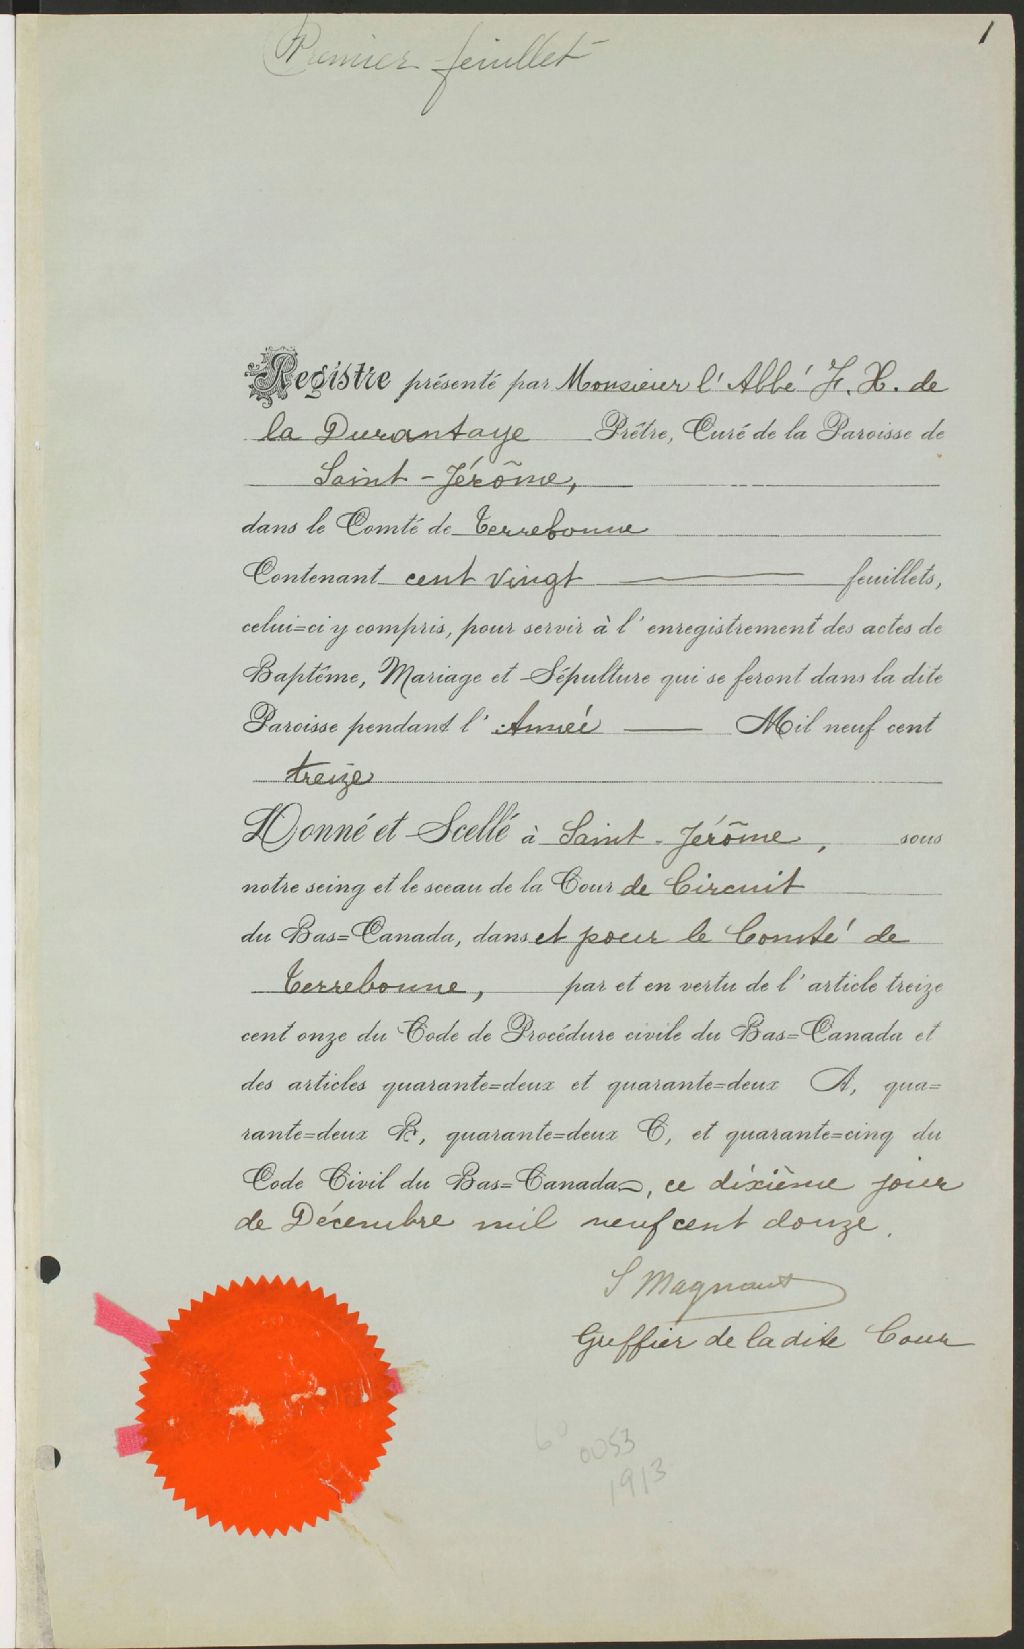 Premier feuillet
1
Registre présenté par Monsieur l'Abbé F. X. de
la Durantaye Prêtre, Curé de la Paroisse de
Saint-Jérôme,
dans le Comté de Terrebonne
Contenant cent vingt feuillets,
celui=ci y compris, pour servir à l'enregistrement des actes de
Baptême, Mariage et Sépulture qui se feront dans la dite
Paroisse pendant l'Année Mil neuf cent
treize
Donné et Scellé à Saint-Jérôme, sous
notre seing et le sceau de la Cour de Circuit
du Bas=Canada, dans et pour le Comté de
Terrebonne, par et en vertu de l'article treize
cent onze du Code de Procédure civile du Bas=Canada et
des articles quarante=deux et quarante=deux A, qua=
rante=deux B, quarante=deux C, et quarante=cinq du
Code Civil du Bas=Canada, ce dixième jour
de Décembre mil neuf cent douze.
S Magnant
Greffier de la dite Cour
60
0053
1913